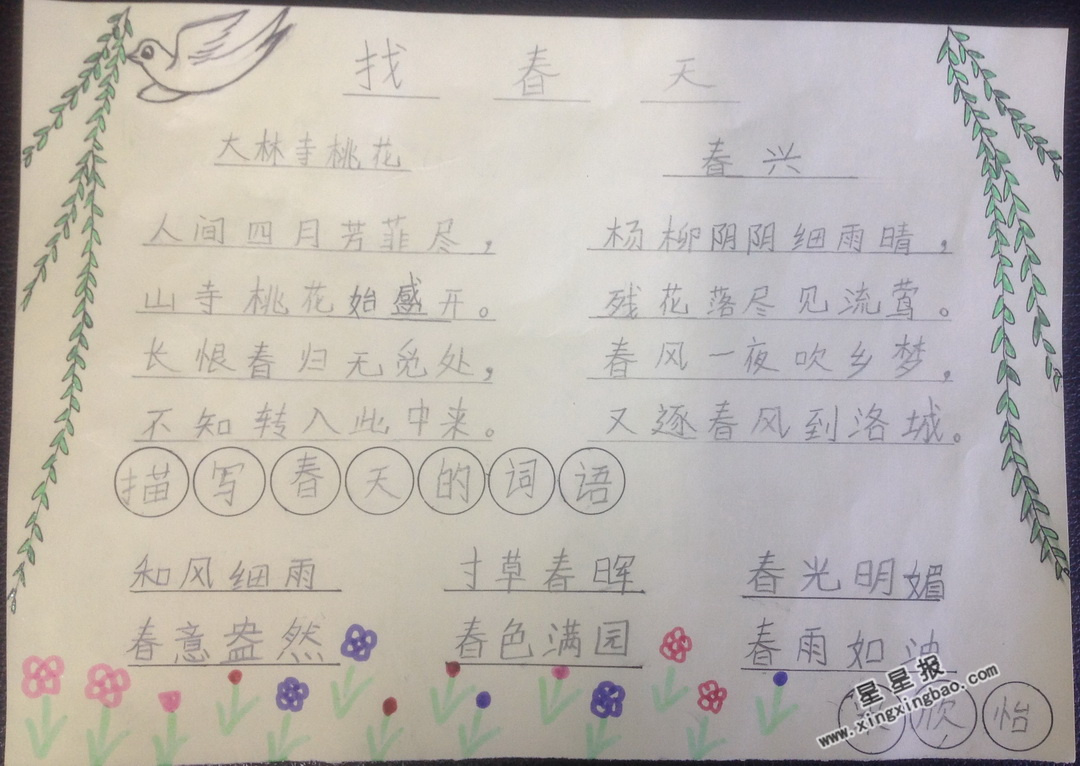 找春天
大林寺桃花
人间四月芳菲尽，
山寺桃花始感开。
长恨春归无觅处，
不知转入此中来。
春兴
杨柳阴阴细雨晴，
残花落尽见流莺。
春风一夜吹乡梦，
又逐春风到洛城。
描写春天的词语
和风细雨 寸草春晖 春光明媚
春意盎然 春色满园 春雨如油
欣怡
星星报
www.xingxingbao.com